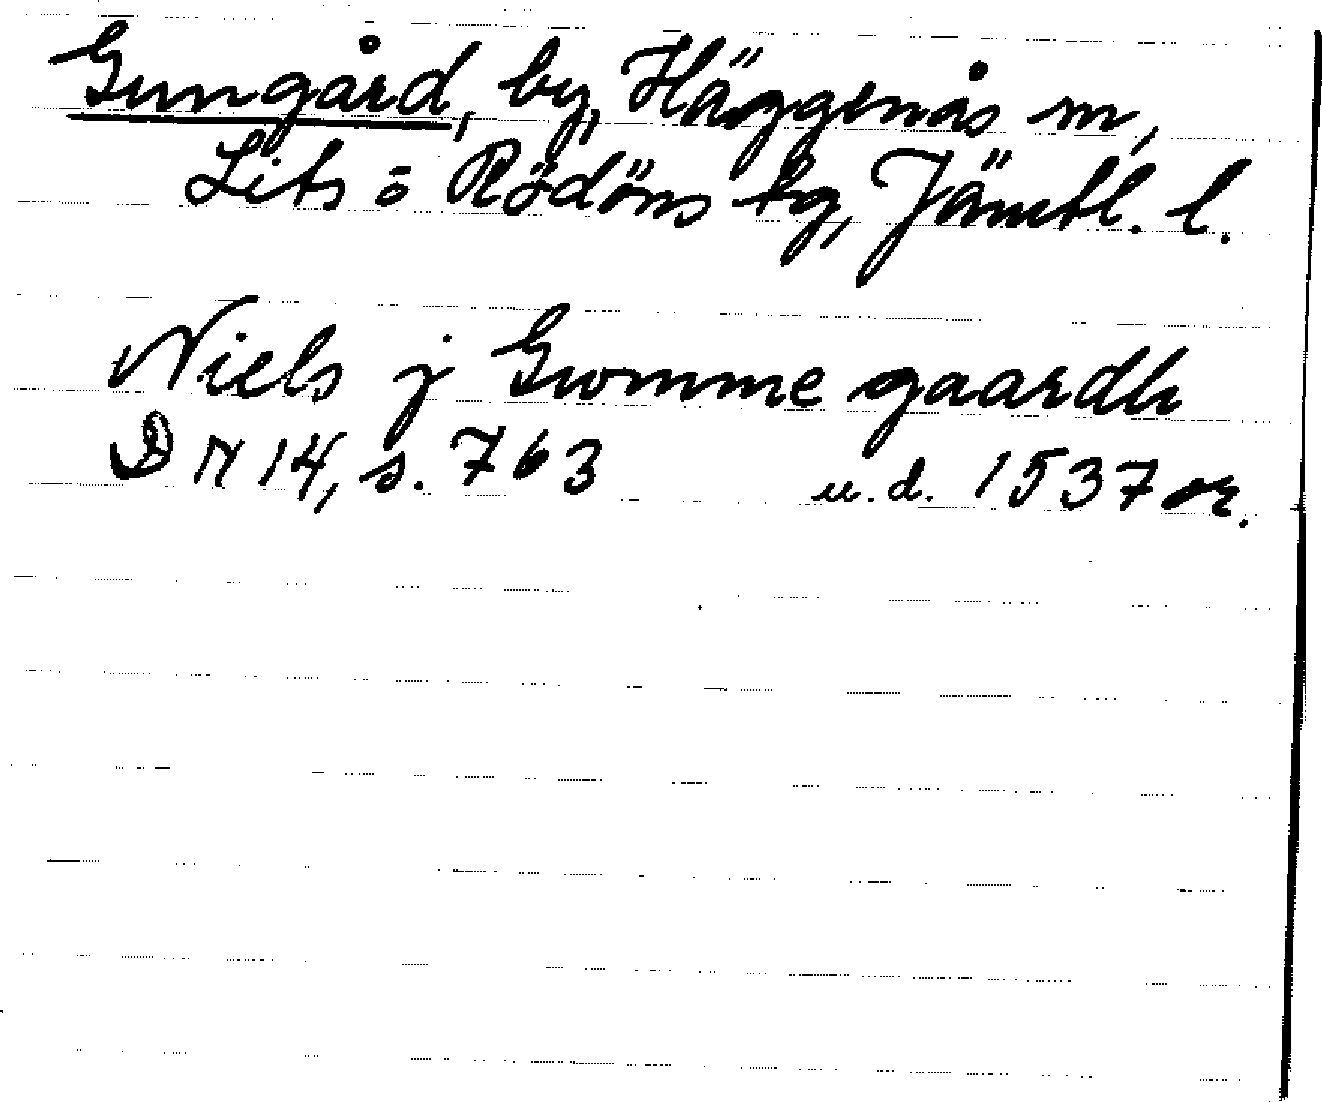 Gungård, by, Häggenås sn,
Lits o Rödöns tg, Jämtl. l.
Niels j Gwnnme gaardh
DN 14, s. 763 u.d. 1537 or.